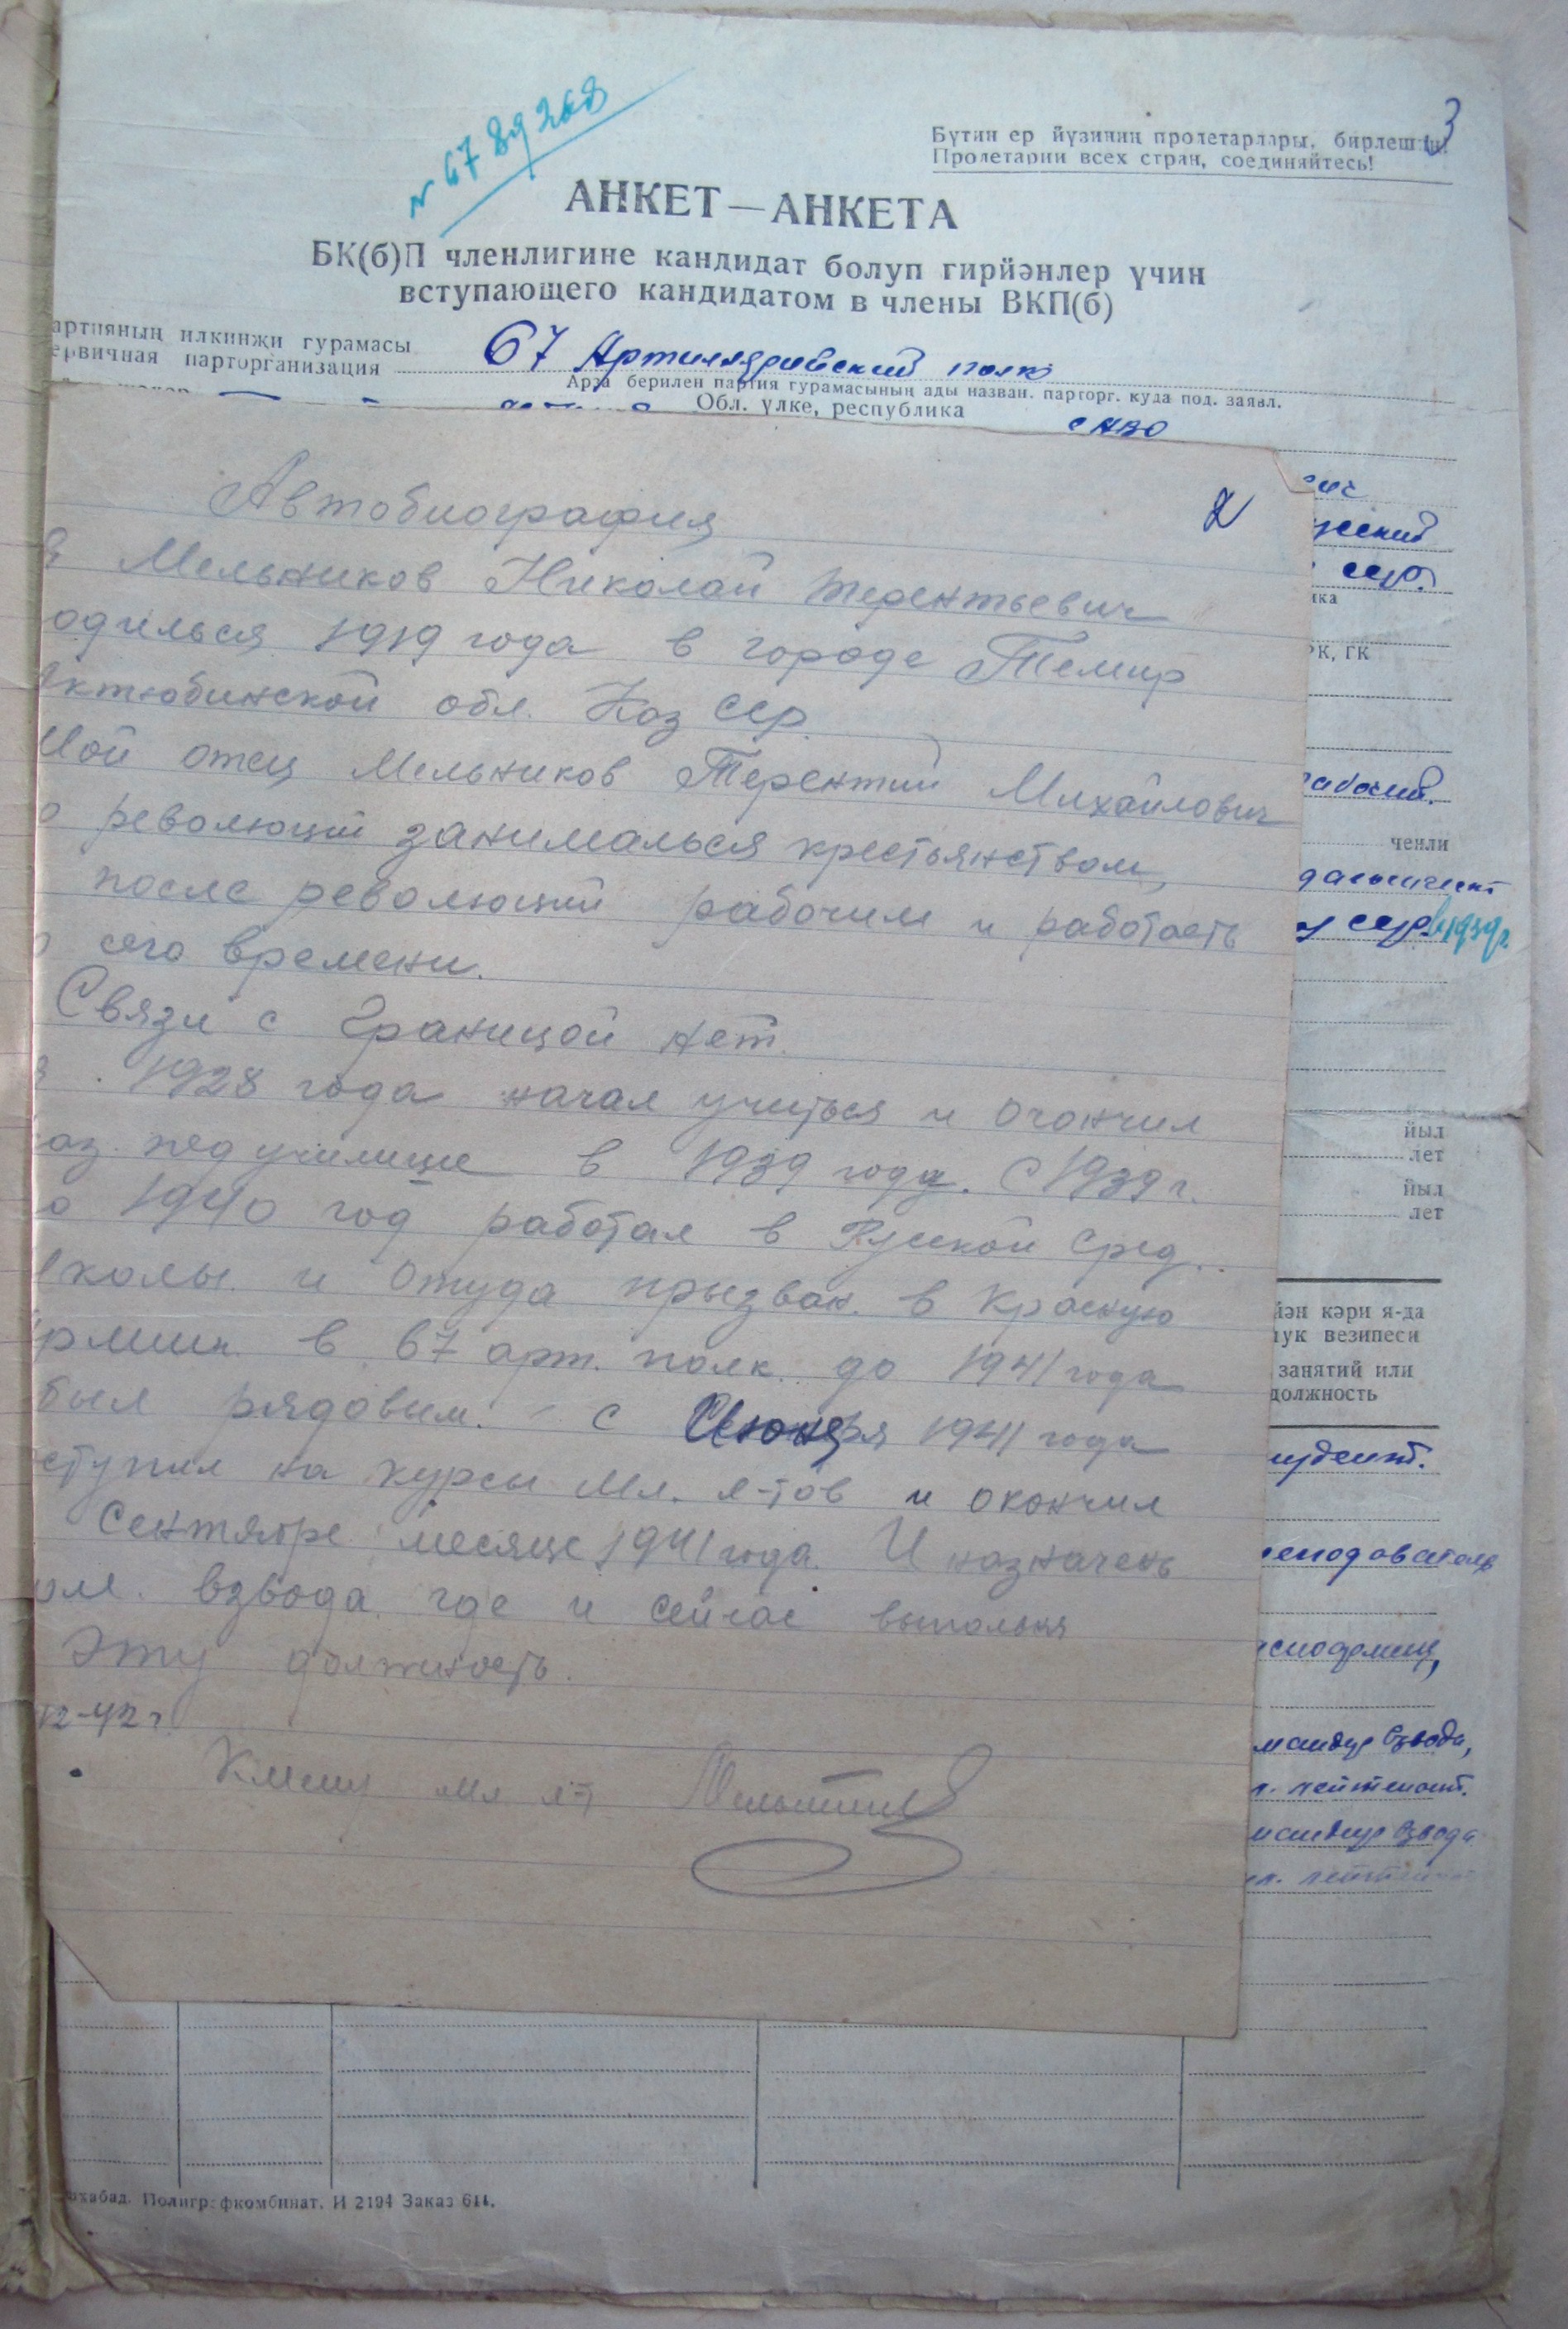 № 6789268
3
Бүтин ер йүзиниң пролетарлары, бирлешиң!
Пролетарии всех стран, соединяйтесь!
АНКЕТ—АНКЕТА
БК(б)П членлигине кандидат болуп гирйәнлер үчин
вступающего кандидатом в члены ВКП(б)
артияның илкинҗи гурамасы
ервичная парторганизация
67 Артиллярийский полк
Арза берилен партия гурамасының ады назван. парторг. куда под. заявл.
Обл. үлке, республика
САВО
2
Автобиография
Я Мельников Николай Терентьевич
одилься 1919 года в городе Темир
Актюбинской обл. Каз ССР.
Мой отец Мельников Терентий Михайлович
о революций занималься крестьянством,
после революций рабочим и работаеть
о сего времени.
Связи с границой нет.
. 1928 года начал учиться и окончил
аз. пед училище в 1939 году. С 1939 г.
о 1940 год работал в Руской сред.
школы и отуда призван. в Красную
рмии. в 67 арт. полк. до 1941 года
был рядовым. - с Июня 1941 года
ступил на курсы мл. л-тов и окончил
Сентябре месяце 1941 года. И назначень
ом. взвода. где и сейчас выпольня
эту должность.
12-42 г.
мл л-т
ский
ССР.
ика
РК, ГК
рабочий.
ченли
ССР. в 1939 г.
йыл
лет
йыл
лет
йән кәри я-да
лук везипеси
занятий или
должность
студент.
еподователь
асноармеец,
мандир взвода,
л. лейтенант.
мандир взвода
л. лейтенант
шхабад. Полиграфкомбинат. И 2194 Заказ 611.